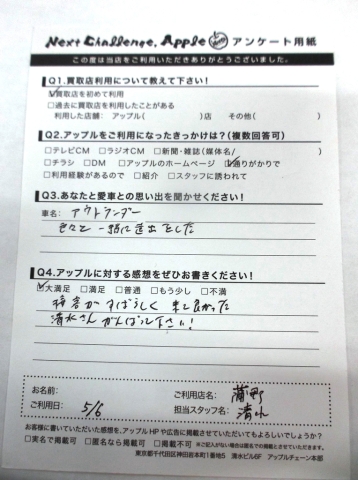 Next Challenge, Apple アンケート用紙
この度は当店をご利用いただきありがとうございました。
Q1.買取店利用について教えて下さい!
☑買取店を初めて利用
□過去に買取店を利用したことがある
利用した店舗: アップル( )店 その他( )
Q2.アップルをご利用になったきっかけは?(複数回答可)
□テレビCM □ラジオCM □新聞・雑誌(媒体名/ )
□チラシ □DM □アップルのホームページ ☑通りがかりで
□利用経験があるので □紹介 □スタッフに誘われて
Q3.あなたと愛車との思い出を聞かせください!
車名: アウトランダー
色々と一緒に遠出をした
Q4.アップルに対する感想をぜひお書きください!
☑大満足 □満足 □普通 □もう少し □不満
接客がすばらしく 来て良かった
清水さんがんばれ下さい!
お名前:
ご利用店名:
ご利用日: 5/6
担当スタッフ名: 清水
お客様に書いていただいた感想を、アップルHPや広告に掲載させていただいてもよろしいでしょうか?
□実名で掲載可 □匿名なら掲載可 □掲載不可 ※ご記入がない場合は匿名での掲載とさせていただきます。
東京都千代田区神田岩本町1番地5 清水ビル6F アップルチェーン本部